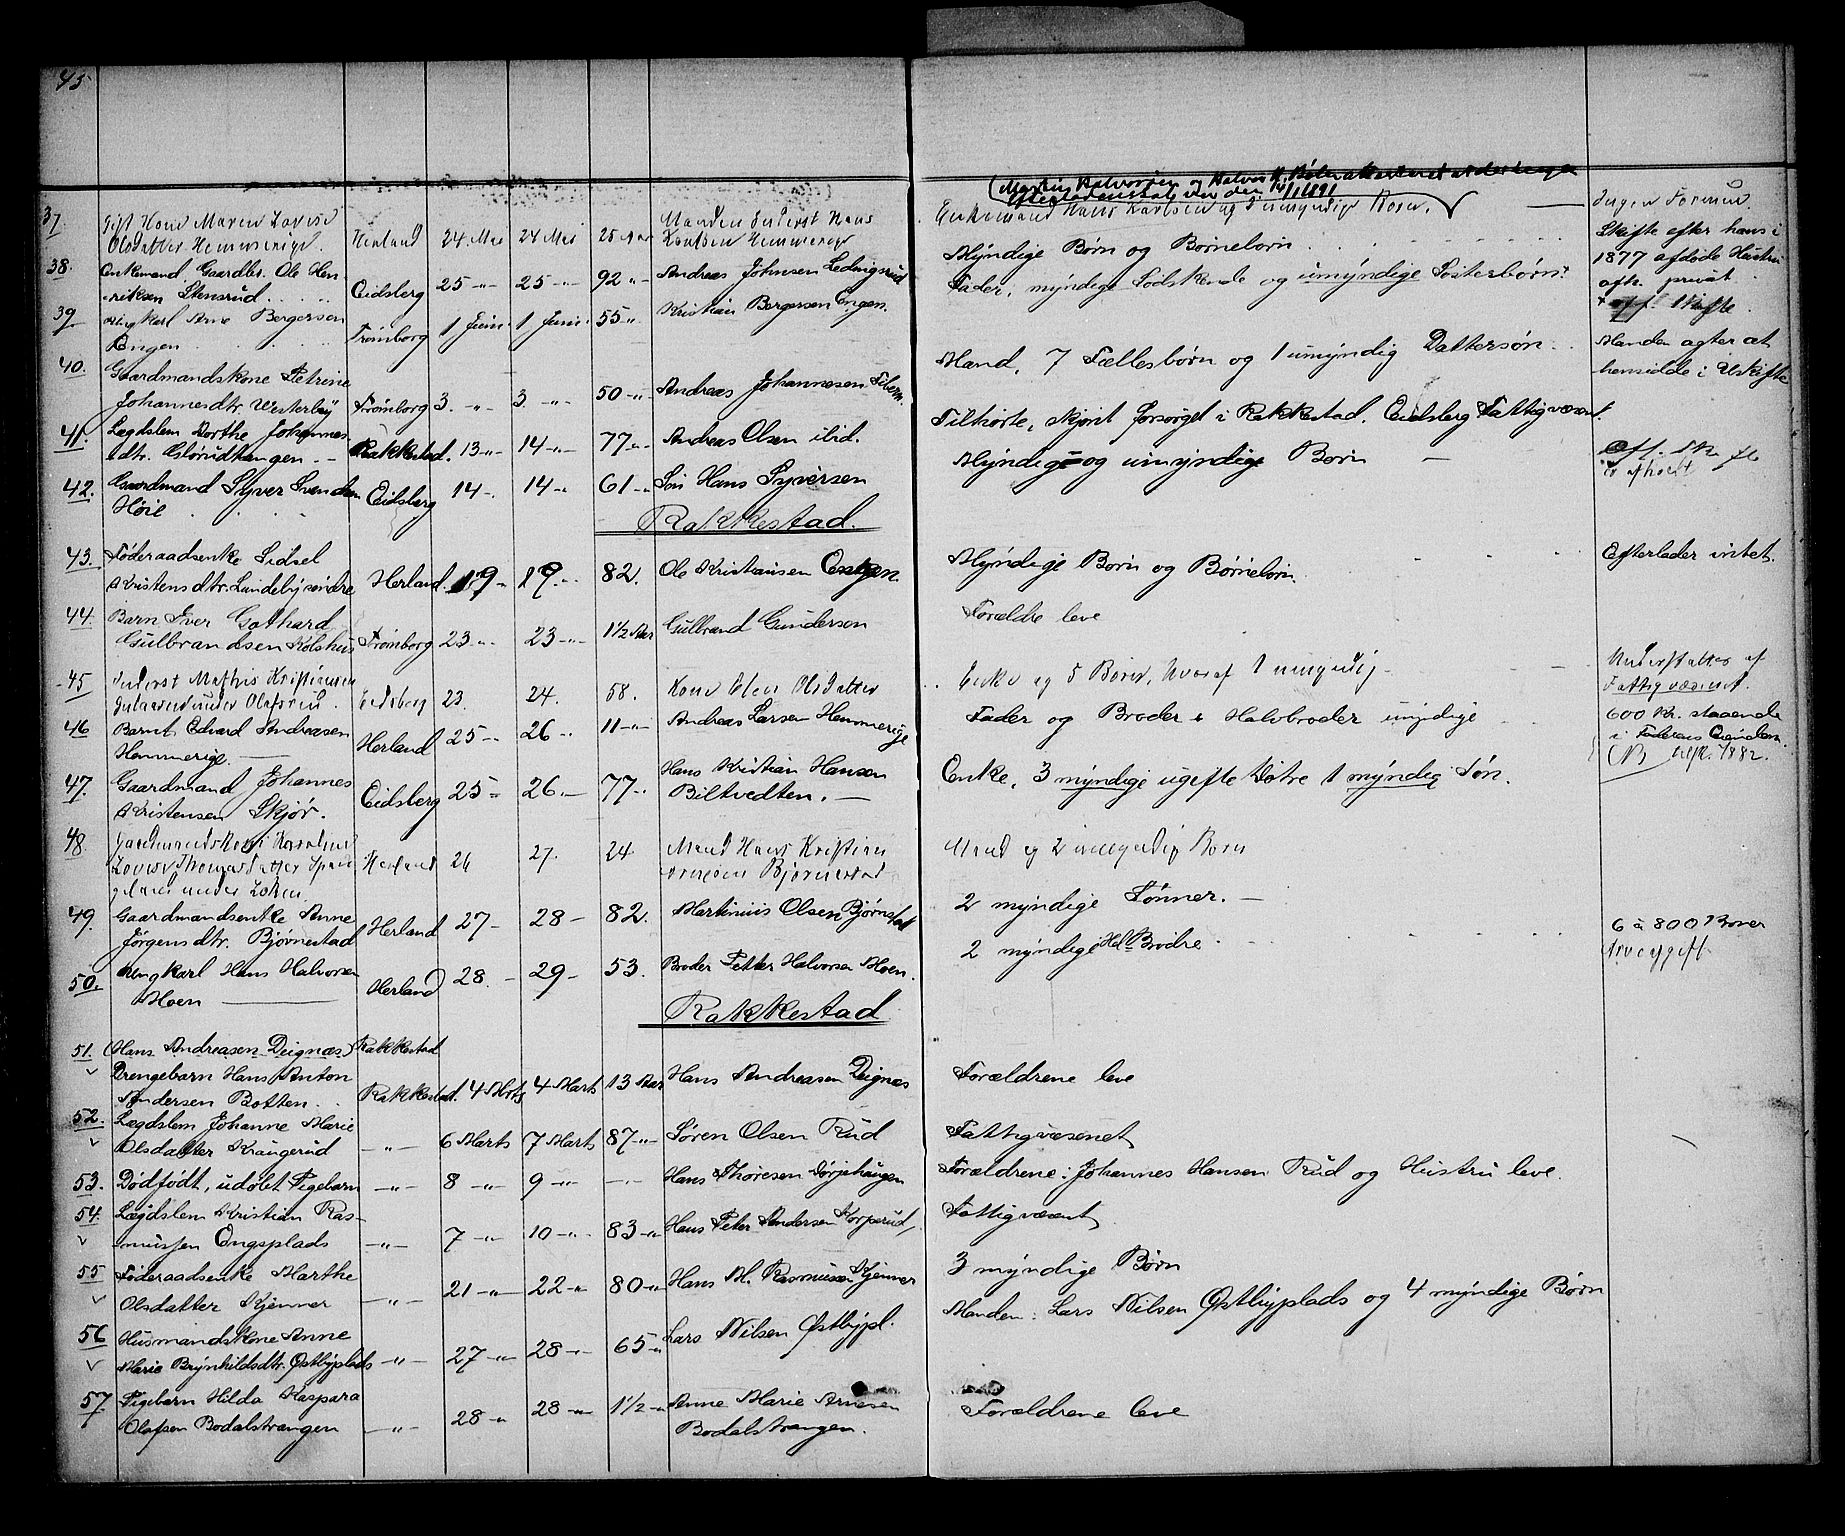 45
(Martin Halvorsen og Halvor H.
14/1 1891
37. Gift Kone Maren Lovise Herland 24 Mai 28 Mai 25 Aar Manden Inderst Hans Enkemand Hans Karlsen og umyndige Børn. Ingen Formue
Olsdatter Hemmerige. Knutsen Hemmerige
38. Enkemand Gaardbr. Ole Hen- Eidsberg 25 -"- 25 -"- 92 -"- Andreas Johnsen Myndige Børn og Børnebørn. Skifte efter hans i
riksen Stensrud. 1877 afdøde Hustru
afh. privat.
39 Ungkarl Arne Bergersen Trømborg 1 Juni. 1 Juni. 55 -"- Kristian Bergersen Engen. Fader, myndige Sødskende og umyndige Søsterbørn. + off. Skifte.
Engen
40. Gaardmandskone Petrine Trømborg 3. -"- 3. -"- 50 -"- Andreas Johannesen Mand, 7 Fællesbørn og 1 umyndig Dattersøn. Manden agter at
Johannesdtr. Westerby hensidde i Uskifte
41. Lægdslem Dorthe Johannes- Rakkestad. 13 -"- 14 -"- 77 -"- Andreas Olsen ibid. Tilhørte, skjønt forsørget i Rakkestad. Eidsberg Fattigvæsent.
dtr. Glørudhangen.
42. Gaardmand Syver Svendsen Eidsberg 14 -"- 14 -"- 61 -"- Søn Hans Syversen Myndige og umyndige Børn Off. Sk.
Høie er afholt
Rakkestad.
43. Føderaadsenke Sidsel Herland. 19 -"- 19. -"- 82. Ole Kristiansen Myndige Børn og Børnebørn. Efterlader intet.
Kristensdtr. Lundeby søndre
44. Barn Iver Gothard Trømborg 23 -"- 23 -"- 1½ Aar Gulbrand Gundersen Forældre leve
Gulbrandsen Kolshus
45 Inderst Mathis Kristiansen Eidsberg 23. 24. 58. Kone Elen Olsdatter Enke og 5 Børn, hvoraf 1 umyndig. Understøttes af
under Olafsrud. Fattigvæsenet.
46 Barnt Edvard Andreasen Herland 25 -"- 26 -"- 11 -"- Andreas Larsen Hemmerige Fader og Broder & Halvbroder umyndige 600 Kr. staaende
Hemmerige. i Faderens Eiendom.
1882.
47. Gaardmand Johannes Eidsberg 25 -"- 26 -"- 77 -"- Hans Kristian Hansen Enke, 3 myndige ugifte Døtre 1 myndig Søn.
Kristensen Skjør. Biltvedten.
48. Gaardmandskone Karoline Herland 26 27. 24 Mand Hans Kristian Mand og 2 umyndige Børn
Lovise Thomasdatter
under Bjørnestad
49. Gaardmandsenke Anne Herland 27 - 28 - 82. Martinius Olsen Bjørnstad 2 myndige Sønner. 6 à 800 Kroner
Jørgensdtr. Bjørnestad Arveafgift
50. Ungkarl Hans Halvorsen Herland 28. 29 - 53. Broder Petter Halvorsen Moen. 2 myndige Hel Brødre.
Moen
Rakkestad
51. (Hans Andreasen Deignæs) Rakkestad
Drengebarn Hans Anton Rakkestad. 4 Mrts 4 Marts 13 Aar Hans Andreasen Deignæs Forældrene leve
Andersen Botten.
52. Lægdslem Johanne Marie -"- 6 Marts 7 Marts 87 -"- Søren Olsen Rud Fattigvæsenet
Olsdatter Krangerud
53. Dødfødt, udøbt Pigebarn -"- 8 -"- 9 -"- Hans Thoresen Forældrene: Johannes Hansen Rud og Hustru leve.
54. Lægdslem Kristian Ras- -"- 7 -"- 10 -"- 83 -"- Hans Peter Andersen Korperud, Fattigvæsent
mussen Engsplads
55 Føderaadsenke Marthe -"- 21 -"- 22 -"- 80 -"- Hans M. Rasmussen Kjenner 3 myndige Børn
Olsdatter Kjenner
56 Husmandskone Anne -"- 27 -"- 28 -"- 65 -"- Lars Nilsen Østbypl. Manden: Lars Nilsen Østbyplads og 4 myndige Børn
Marie Brynhildsdtr. Østbyplads
57 Pigebarn Hilda Kaspara -"- 28 -"- 28 -"- 1½ -"- Anne Marie Arnesen Forældrene leve
Olafsen Bodalstrangen Bodalstrangen.